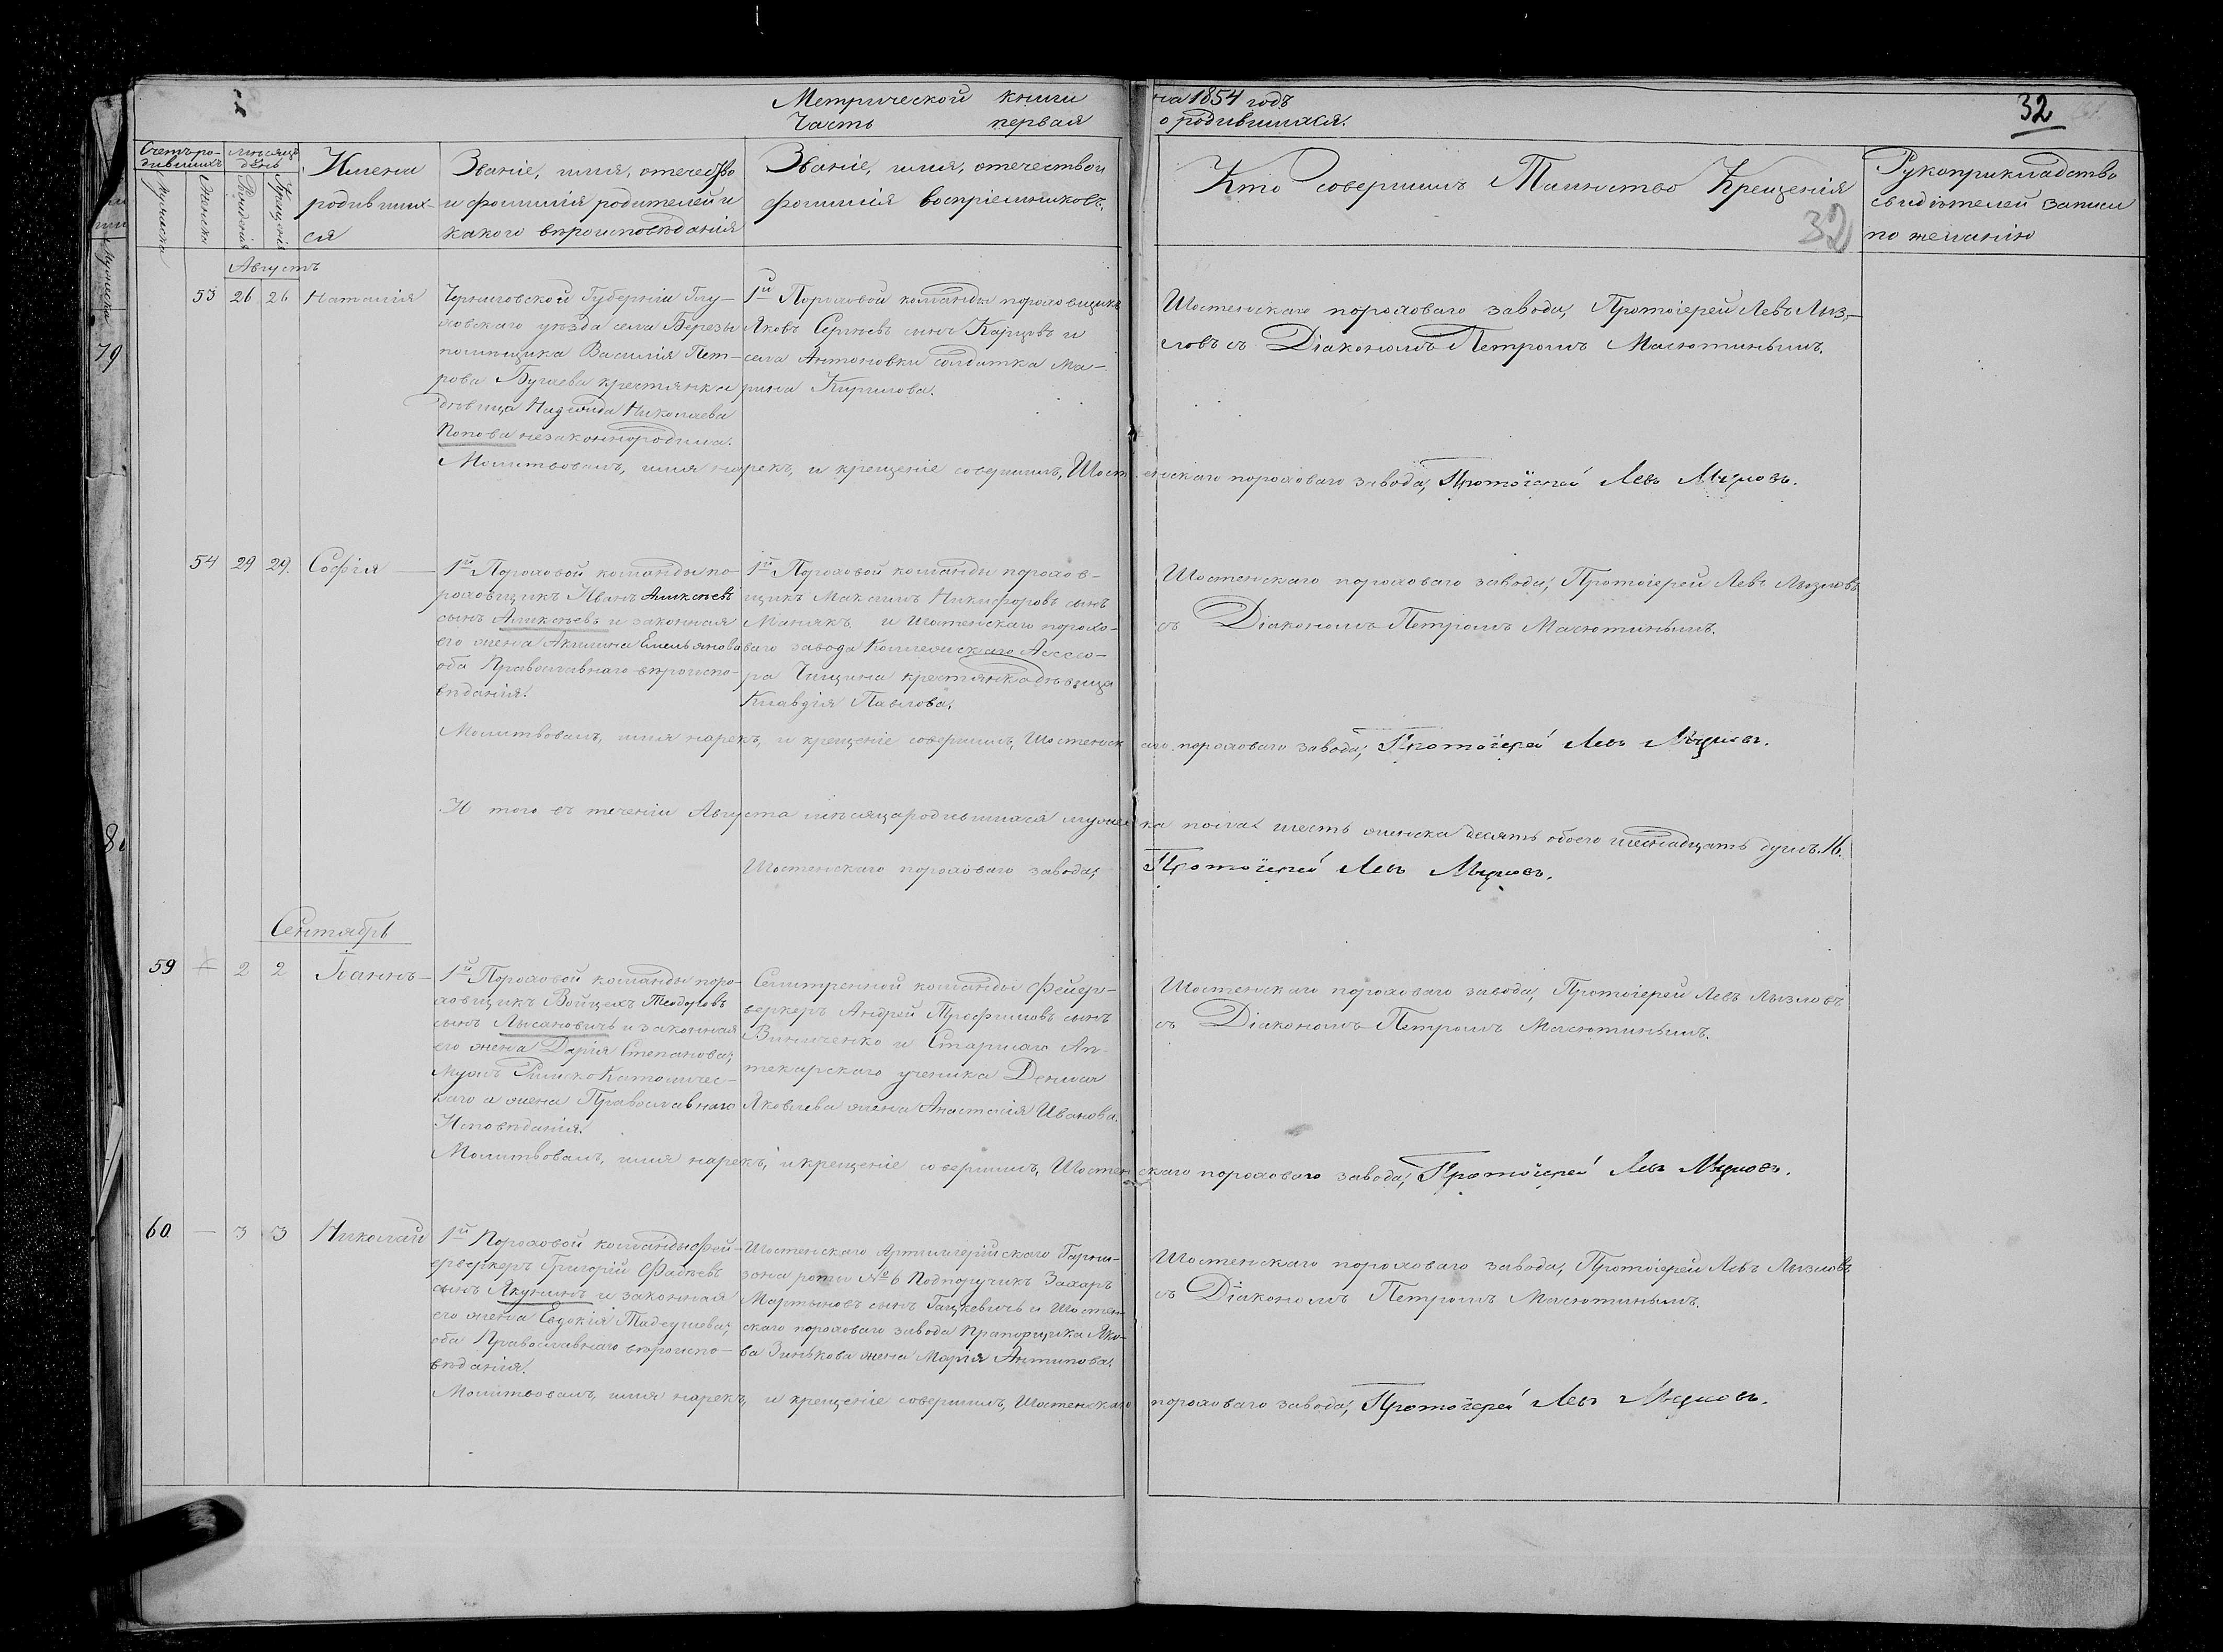 Метрической книги на 1854 годъ
Часть первая о родившихся.
32
32
Счетъ ро-
дившихъ
Мужеска
Женска
Мѣсяцъ
день
Рожденія
Крещенія
Имена
родивших-
ся
Званіе, имя, отечество
и фомилія родителей и
какого вѣроисповѣданія
Званіе, имя, отечество и
фомилія воспріемниковъ.
Кто совершилъ Таинство Крещенія
Рукоприкладство
свидѣтелей записи
по желанію
Августъ
53 26 26 Наталія
Черниговской Губерніи Глу-
ховскаго уѣзда села Березы
помѣщика Василія Пет-
рова крестьянка
дѣвица Надежда Николаева
Попова незаконнородила.
1й Пороховой команды пороховщикъ
Яковъ Сергѣевъ сынъ и
села Антоновки солдатка Ма-
рина Кирилова.
Шостенскаго пороховаго завода, Протоіерей Левъ Лыз-
ловъ съ Діакономъ Петромъ Малютинымъ.
Молитвовалъ, имя нарекъ, и крещеніе совершилъ, Шостенскаго пороховаго завода, Протоіерей Левъ Лызловъ.
54 29 29. Софія
1й Пороховой команды по-
роховщикъ Иванъ Алексѣевъ
сынъ Алексѣевъ и законная
его жена Акилина Емельянова
оба Православнаго вѣроиспо-
вѣданія.
1й Пороховой команды порохов-
щикъ Максимъ Никифоровъ сынъ
и Шостенскаго порохо-
ваго завода Коллежскаго Ассесо-
ра крестьянка дѣвица
Клавдія Павлова.
Шостенскаго пороховаго завода, Протоіерей Левъ Лызловъ
съ Діакономъ Петромъ Малютинымъ.
Молитвовалъ, имя нарекъ, и крещеніе совершилъ, Шостенскаго пороховаго завода, Протоіерей Левъ Лызловъ.
И того въ теченіи Августа мѣсяца родившихся мужеска пола шесть женска десять обоего шеснадцать душъ. 16.
Шостенскаго пороховаго завода, Протоіерей Левъ Лызловъ.
Сентябрь
59 2 2 Іоаннъ
1й Пороховой команды поро-
ховщикъ Войцехъ Теодоровъ
сынъ Лысановичъ и законная
его жена Дарія Степанова,
Мужъ Римско Католичес-
каго а жена Православнаго
Исповѣданія.
Селитренной команды Фейер-
веркеръ Андрей Трофимовъ сынъ
Виниченко и Старшаго Ап-
текарскаго ученика Дениса
Яковлева жена Анастасія Иванова.
Шостенскаго пороховаго завода, Протоіерей Левъ Лызловъ
съ Діакономъ Петромъ Малютинымъ.
Молитвовалъ, имя нарекъ, и крещеніе совершилъ, Шостенскаго пороховаго завода, Протоіерей Левъ Лызловъ.
60 — 3 3 Николай
1й Пороховой команды Фей-
ерверкеръ Григорій Фадѣевъ
сынъ Якунинъ и законная
его жена Евдокія
оба Православнаго вѣроиспо-
вѣданія.
Шостенскаго Артиллерійскаго Гарни-
зона роты № 6 Подпоручикъ Захаръ
Мартыновъ сынъ Гацкевичъ и Шостен-
скаго пороховаго завода Прапорщика Яко-
ва Зинькова жена Марія Антипова.
Шостенскаго пороховаго завода, Протоіерей Левъ Лызловъ
съ Діакономъ Петромъ Малютинымъ.
Молитвовалъ, имя нарекъ, и крещеніе совершилъ, Шостенскаго пороховаго завода, Протоіерей Левъ Лызловъ.